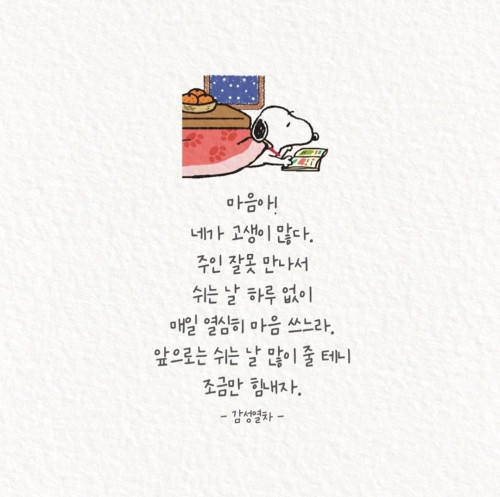 마음아!
네가 고생이 많다.
주인 잘못 만나서
쉬는 날 하루 없이
매일 열심히 마음 쓰느라.
앞으로는 쉬는 날 많이 줄 테니
조금만 힘내자.
- 감성열차 -